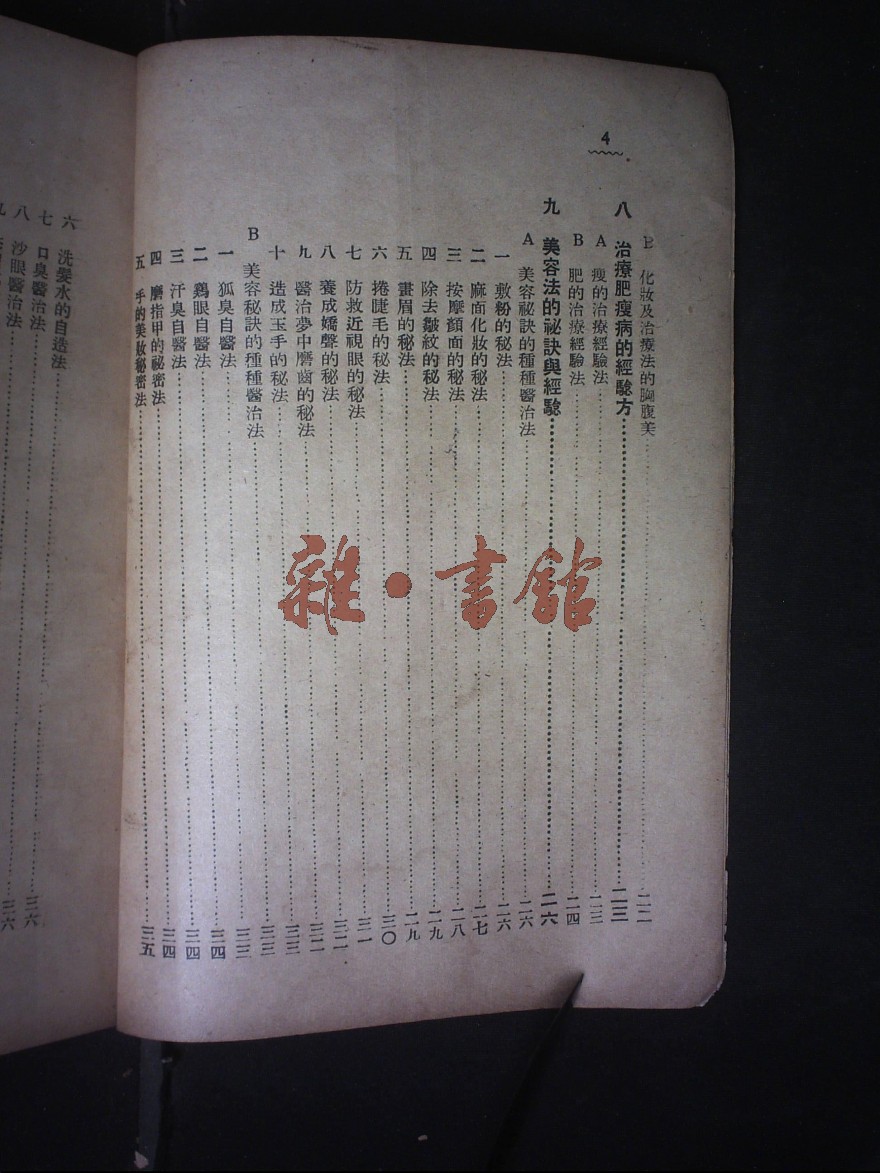 4
B 化妝及治療法的胸腹美……二二
八 治療肥瘦病的經驗方……二三
A 瘦的治療經驗法……二三
B 肥的治療經驗法……二四
九 美容法的祕訣與經驗……二六
A 美容祕訣的種種醫治法……二六
一 敷粉的秘法……二六
二 麻面化妝的秘法……二七
三 按摩顏面的秘法……二八
四 除去皺紋的秘法……二九
五 畫眉的秘法……二九
六 捲睫毛的秘法……三〇
七 防救近視眼的秘法……三一
八 養成嬌聲的秘法……三二
九 醫治夢中磨齒的秘法……三二
十 造成玉手的秘法……三三
B 美容秘訣的種種醫治法……三三
一 狐臭自醫法……三三
二 鷄眼自醫法……三四
三 汗臭自醫法……三四
四 磨指甲的祕密法……三四
五 手的美妝秘密法……三五
六 洗髮水的自造法
七 口臭醫治法……三六
八 沙眼醫治法……三六
九
雜·書館